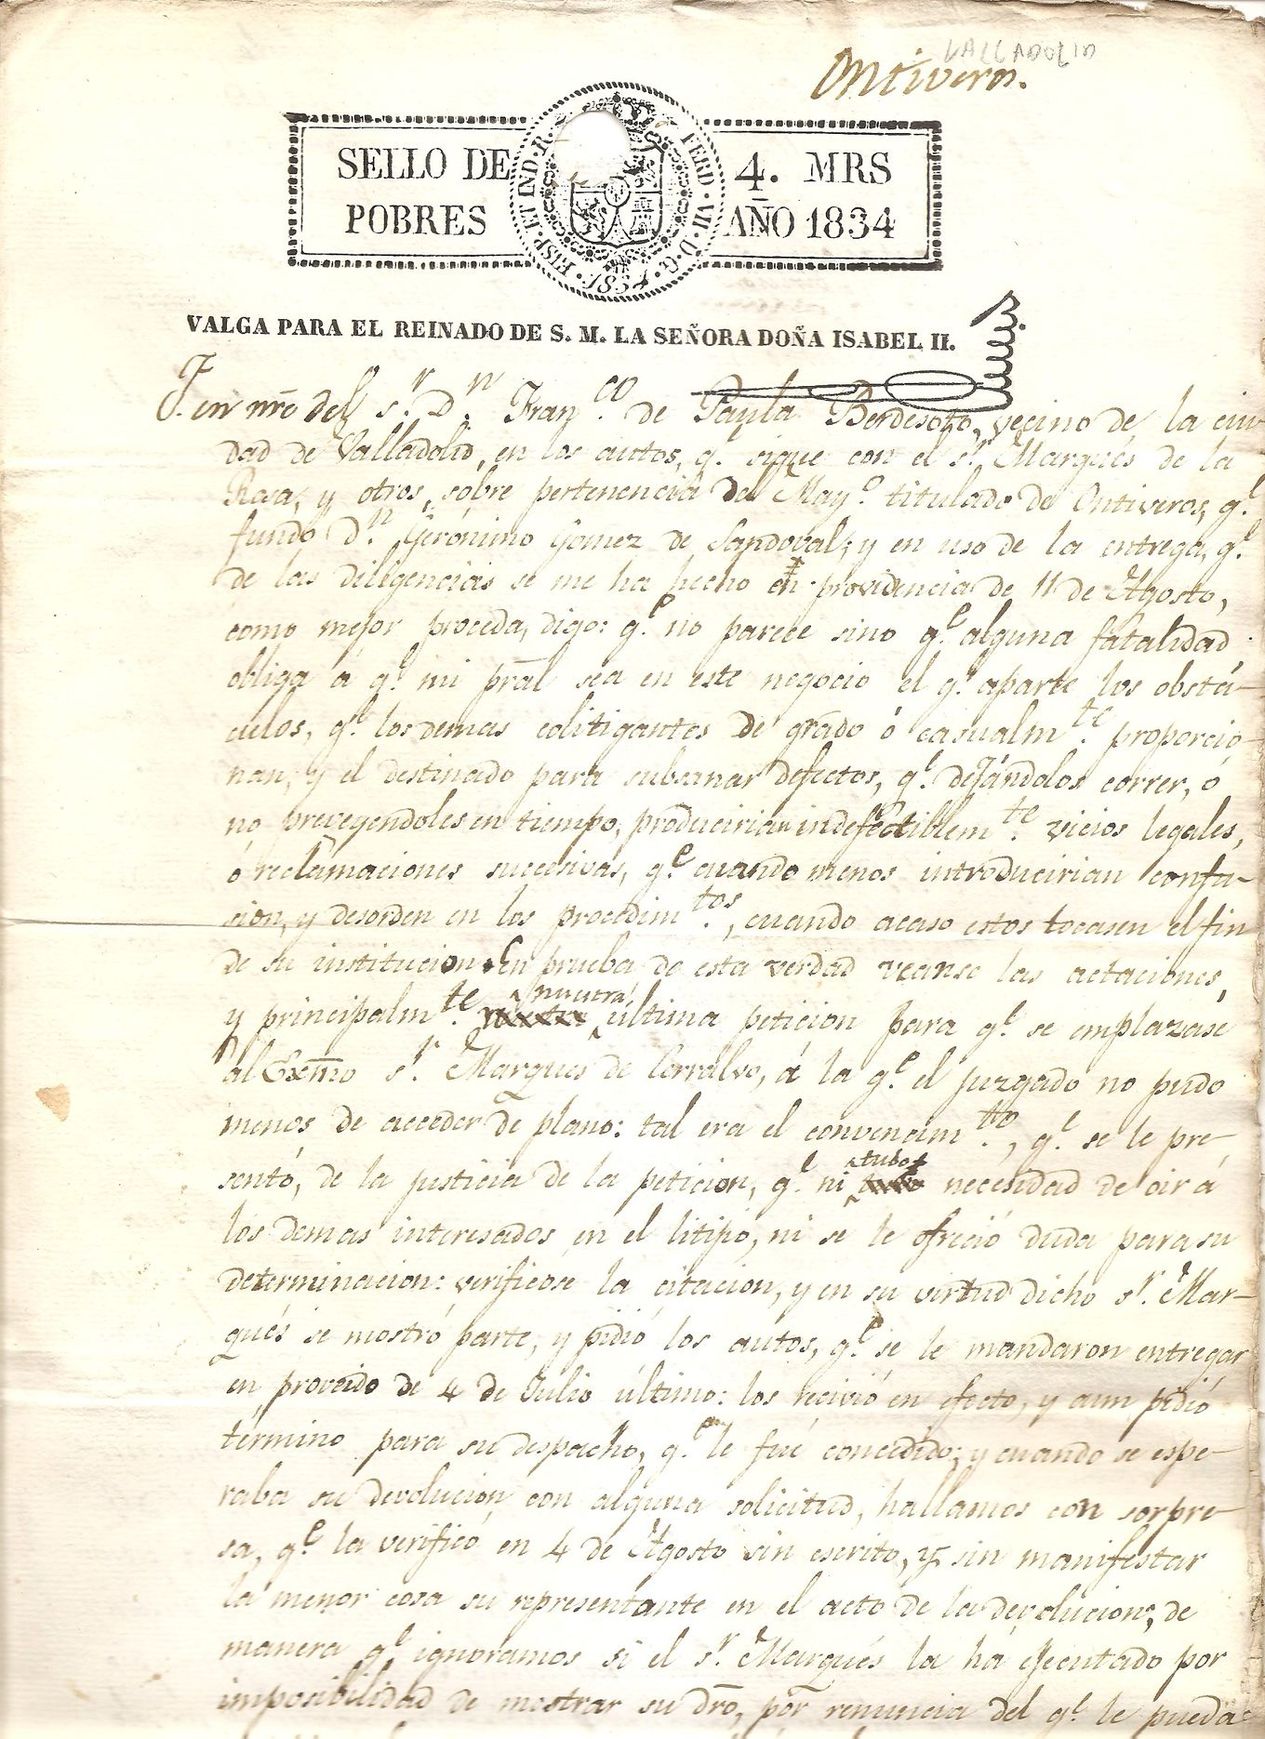 VALLADOLID
Ontiveros.
SELLO DE 4. MRS
POBRES AÑO 1834
HISP. ET IND. R. FERD. VII. D. G. 1834
VALGA PARA EL REINADO DE S. M. LA SEÑORA DOÑA ISABEL II.
F. en nre del s.r D.n Fran.co de Paula Berdesoto, vecino de la ciu
dad de Valladolid, en los autos, q.e sigue con el s.r Marqués de la
Rosa, y otros, sobre pertenencia del May.o titulado de Ontiveros, q.e
fundó D.n Gerónimo Gomez de Sandoval; y en uso de la entrega, q.e
de las diligencias se me ha hecho en providencia de 11 de Agosto,
como mejor proceda, digo: q.e no parece sino q.e alguna fatalidad
obliga á q.e mi pral sea en este negocio el q.e aparte los obstá-
culos, q.e los demas colitigantes de grado ó casualm.te proporcio-
nan, y el destinado para subsanar defectos, q.e dejándolos correr, ó
no preveyendoles en tiempo, producirian indefectiblem.te vicios legales,
ó reclamaciones sucesivas, q.e cuando menos introducirian confu-
sion, y desorden en los procedim.tos, cuando acaso estos tocasen el fin
de su institucion. En prueba de esta verdad veanse las actaciones,
y principalm.te nuestra última peticion para q.e se emplazase
al Exmo s.r Marques de Cerralvo, á la q.e el juzgado no pudo
menos de acceder de plano: tal era el convencim.to, q.e se le pre-
sentó, de la justicia de la peticion, q.e ni tubo necesidad de oir á
los demas interesados en el litijio, ni se le ofreció duda para su
determinacion: verificose la citacion, y en su virtud dicho s.r Mar-
qués se mostró parte, y pidió los autos, q.e se le mandaron entregar
en proveido de 4 de Julio último: los recivió en efecto, y aun pidió
término para su despacho, q.e le fué concedido; y cuando se espe-
raba su devolucion con alguna solicitud, hallamos con sorpre-
sa, q.e la verificó en 4 de Agosto sin escrito, y sin manifestar
la menor cosa su representante en el acto de la devolucion, de
manera q.e ignoramos si el s.r Marqués la ha ejecutado por
imposibilidad de mostrar su dro, por renuncia del q.e le pueda